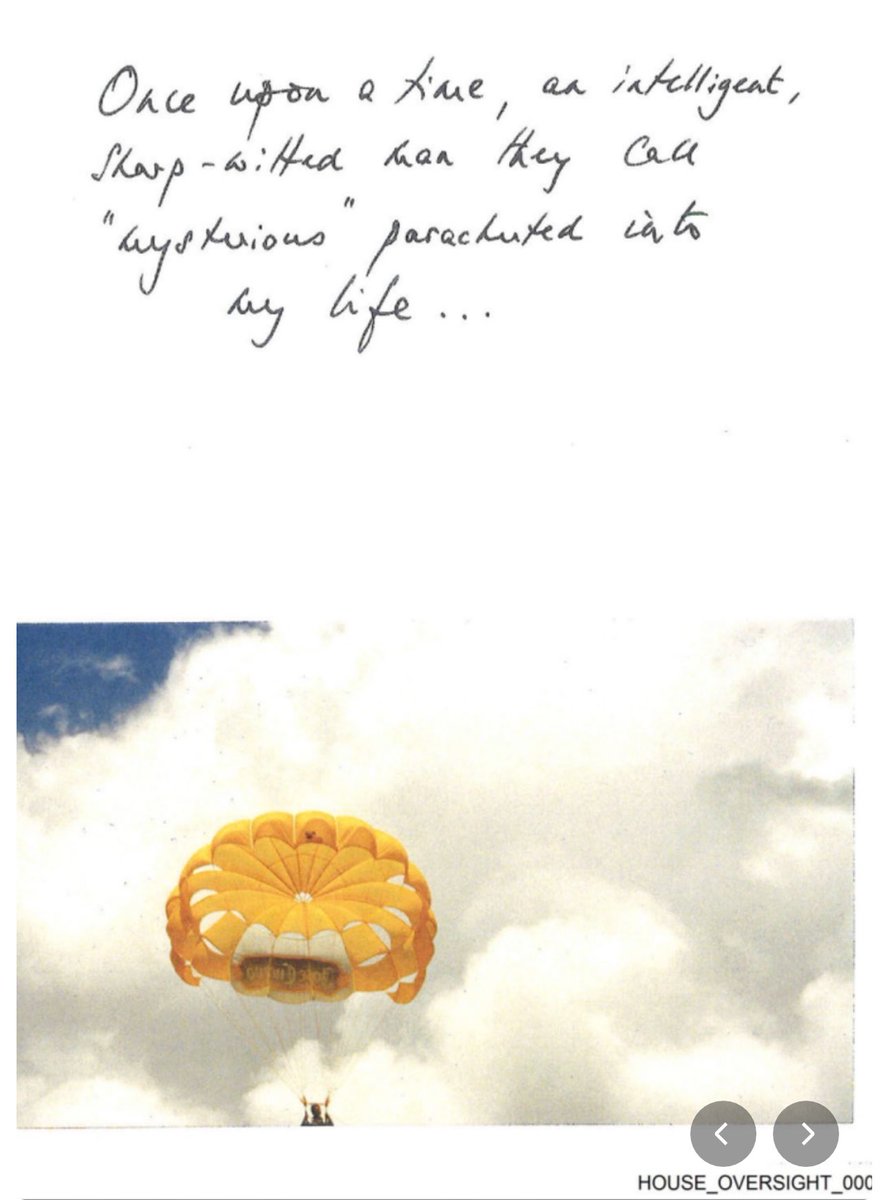 Once upon a time, an intelligent,
sharp-witted man they call
"mysterious" parachuted into
my life...
HOUSE_OVERSIGHT_000